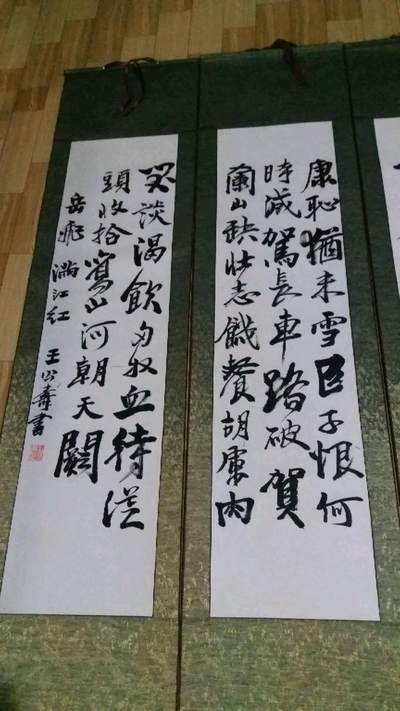 康恥猶未雪臣子恨何
時滅駕長車踏破賀
蘭山缺壯志饑餐胡虜肉
笑談渴飲匈奴血待從
頭收拾舊山河朝天闕
岳飛 滿江紅 王公壽書